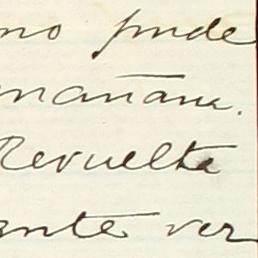 no pude
mañana.
Revuelta
ante ver